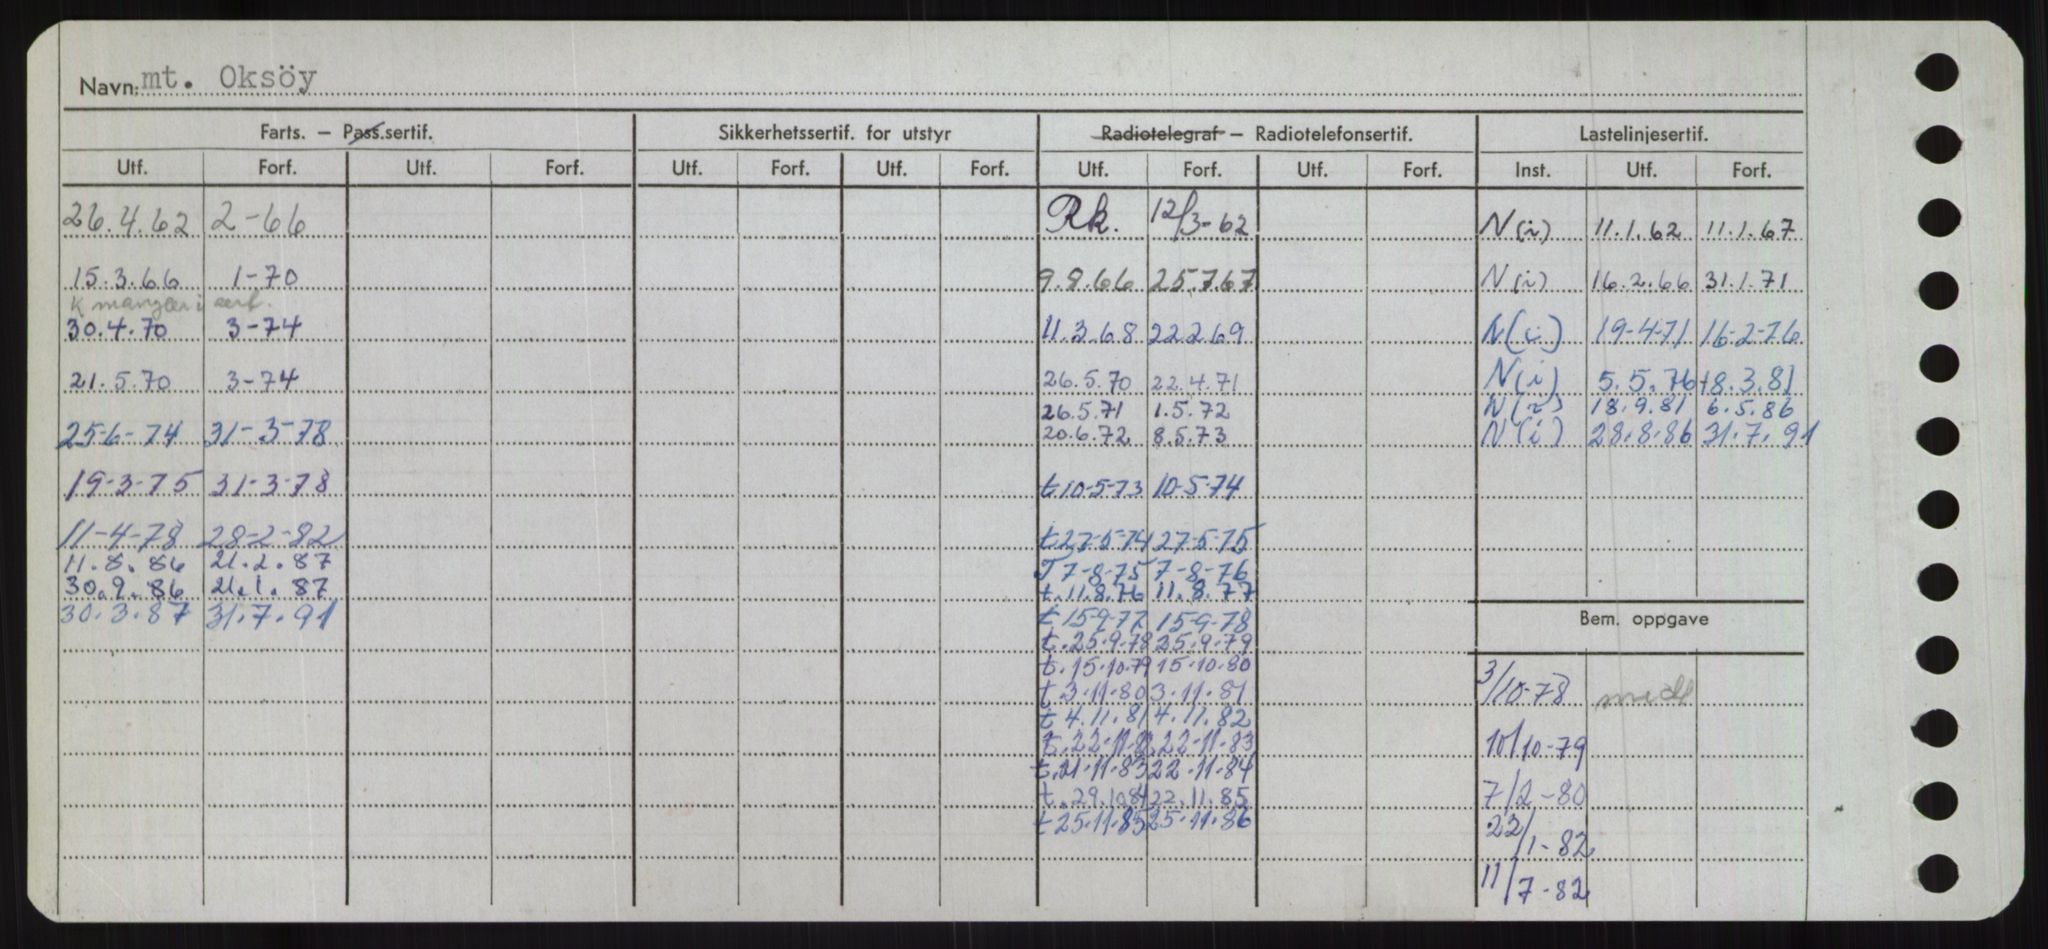 Navn: mt. Oksöy
Farts. – Pass.sertif. Sikkerhetssertif. for utstyr Radiotelegraf – Radiotelefonsertif. Lastelinjesertif.
Utf. Forf. Utf. Forf. Utf. Forf. Utf. Forf. Utf. Forf. Utf. Forf. Inst. Utf. Forf.
26.4.62 2-66 Rk. 12/3-62 N(i) 11.1.62 11.1.67
15.3.66 1-70 9.8.66 25.7.67 N(i) 16.2.66 31.1.71
K mangler i sert.
30.4.70 3-74 11.3.68 22.2.69 N(i) 19-4-71 16-2-76
21.5.70 3-74 26.5.70 22.4.71 N(i) 5.5.76 18.3.81
26.5.71 1.5.72 N(i) 18.9.81 6.5.86
25-6-74 31-3-78 20.6.72 8.5.73 N(i) 28.8.86 31.7.91
19-3-75 31-3-78 t 10-5-73 10-5-74
11-4-78 28-2-82 t 27-5-74 27-5-75
11.8.86 21.2.87 T 7-8-75 7-8-76
30.9.86 21.1.87 t. 11.8.76 11.8.77
30.3.87 31.7.91 t 15-9-77 15-9-78
Bem. oppgave
t. 25.9.78 25.9.79
t. 15.10.79 15.10.80
3/10-78
t 3.11.80 3.11.81
t 4.11.81 4.11.82
t. 22.11.82 22.11.83
10/10-79
t. 21.11.83 22.11.84
t. 29.10.84 22.11.85
7/2-80
t 25.11.85 25.11.86
22/1-82
11/7-82